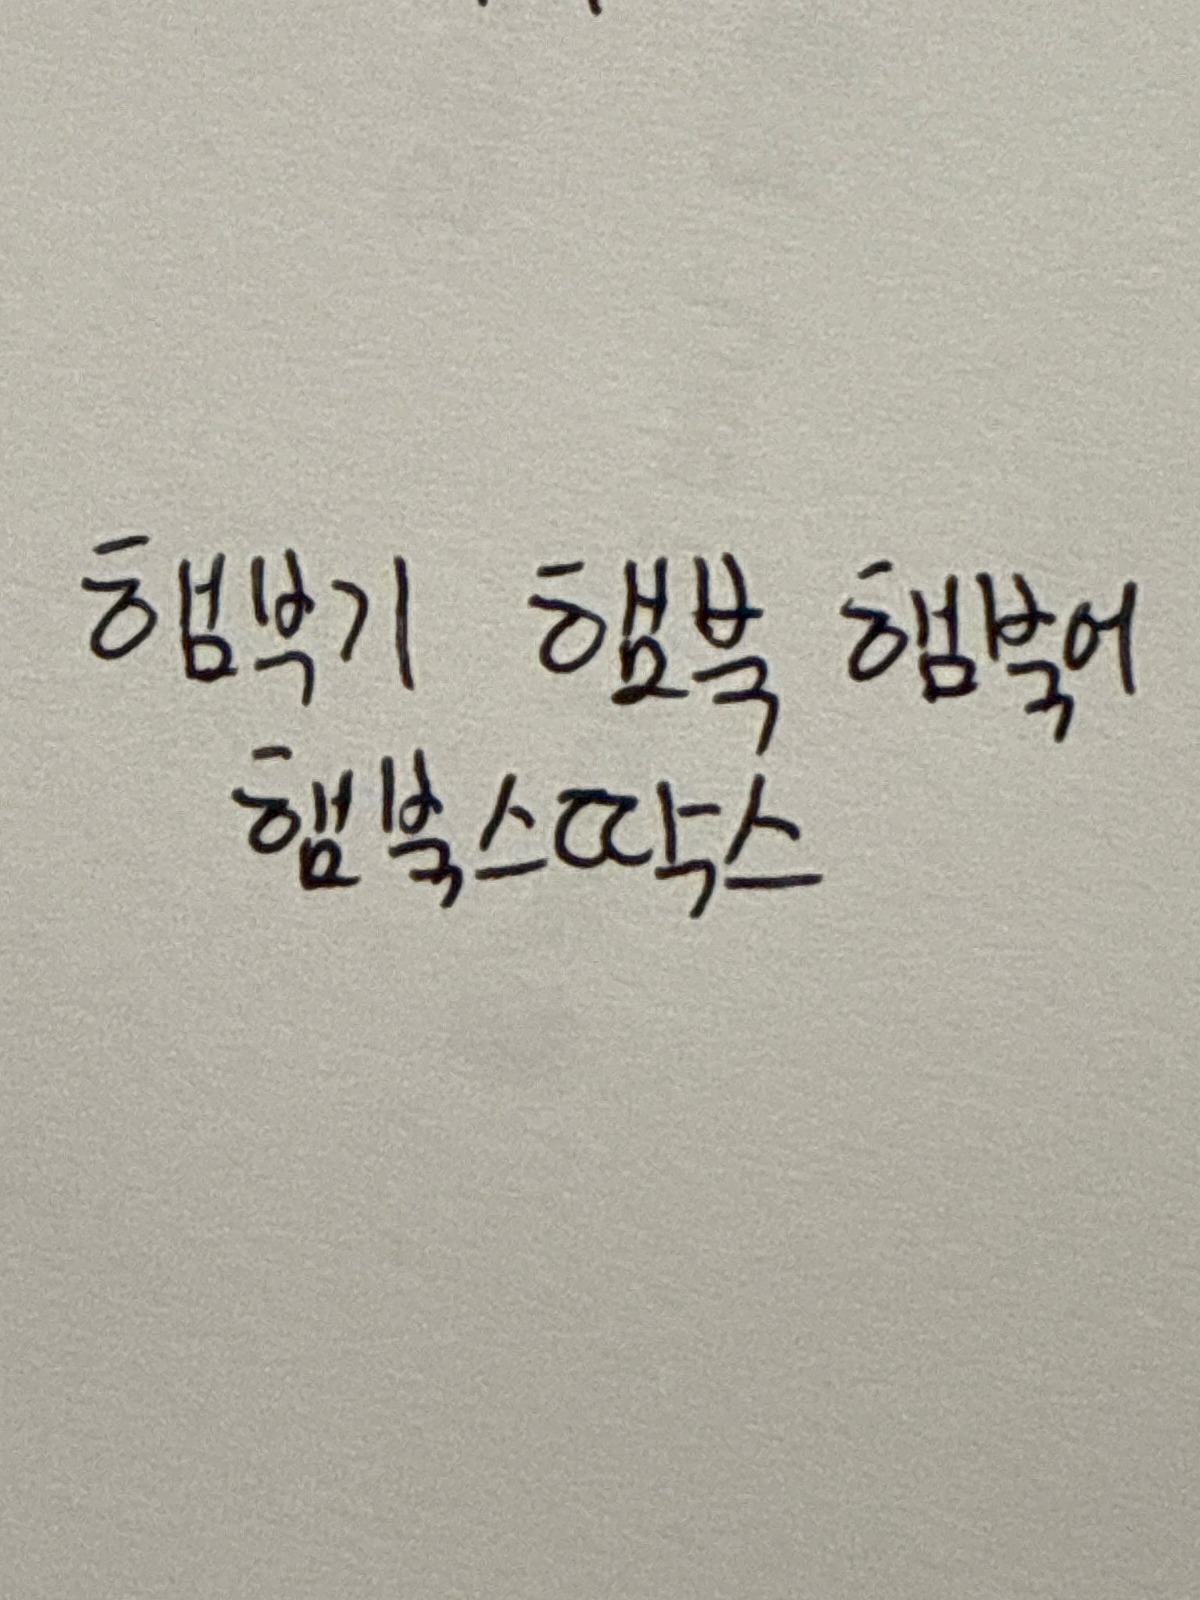 햄북기 햄북 햄북어
햄북스딱스